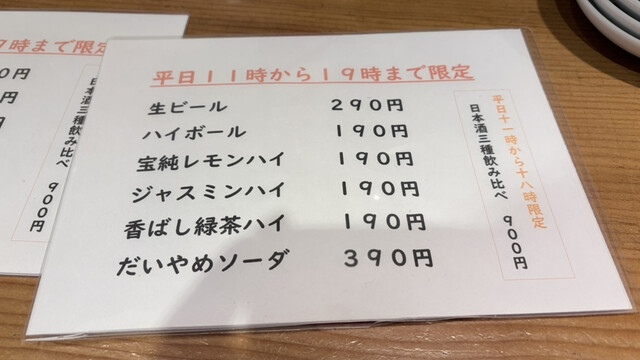 平日11時から19時まで限定
生ビール 290円
ハイボール 190円
宝純レモンハイ 190円
ジャスミンハイ 190円
香ばし緑茶ハイ 190円
だいやめソーダ 390円
平日十一時から十八時限定
日本酒三種飲み比べ 900円
9時まで限定
0円
円
日本酒三種飲み比べ 900円